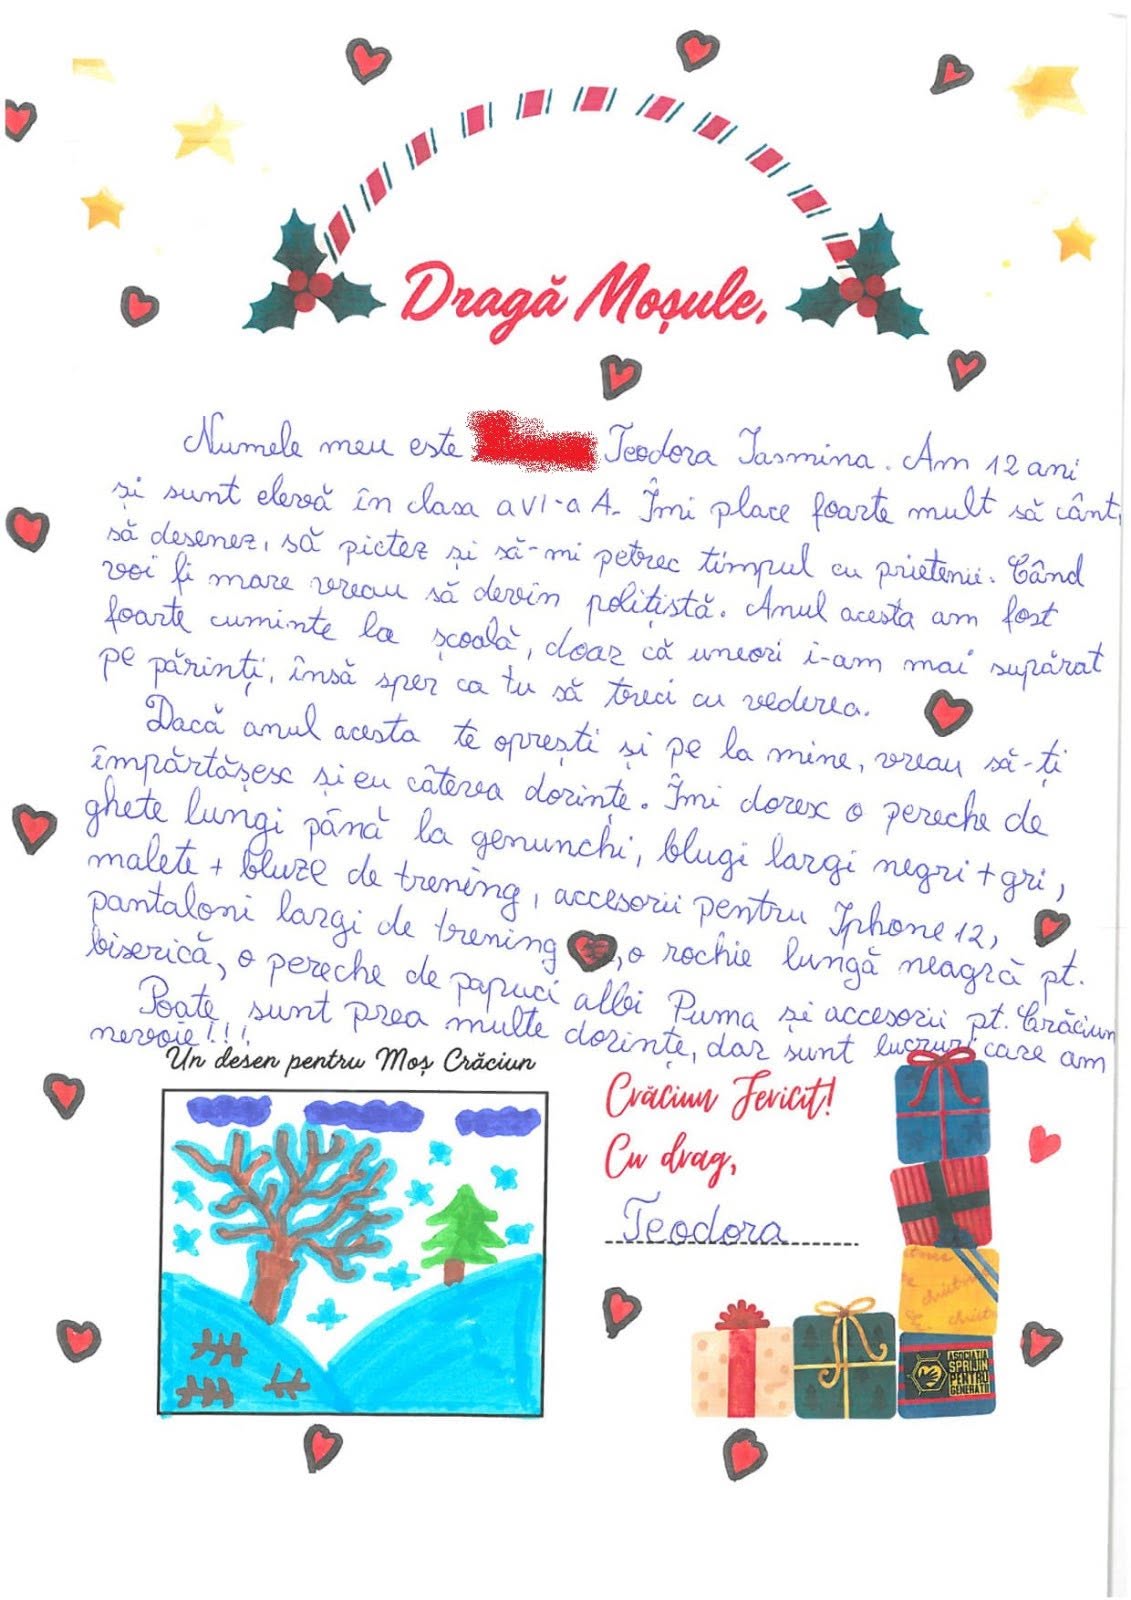 Dragă Moșule,
Numele meu este Teodora Iasmina. Am 12 ani
și sunt elevă în clasa a VI-a A. Îmi place foarte mult să cânt,
să desenez, să pictez și să-mi petrec timpul cu prietenii. Când
voi fi mare vreau să devin polițistă. Anul acesta am fost
foarte cuminte la școală, doar că uneori i-am mai supărat
pe părinți, însă sper ca tu să treci cu vederea.
Dacă anul acesta te oprești și pe la mine, vreau să-ți
împărtășesc și eu câteva dorințe. Îmi doresc o pereche de
ghete lungi până la genunchi, blugi largi negri + gri,
malete + bluze de trening, accesorii pentru Iphone 12,
pantaloni largi de trening, o rochie lungă neagră pt.
biserică, o pereche de papuci albi Puma și accesorii pt. Crăciun
Poate sunt prea multe dorințe, dar sunt lucruri care am
nevoie!!!
Un desen pentru Moș Crăciun
Crăciun Fericit!
Cu drag,
Teodora
christmas
ASOCIAȚIA
SPRIJIN
PENTRU
GENERAȚII